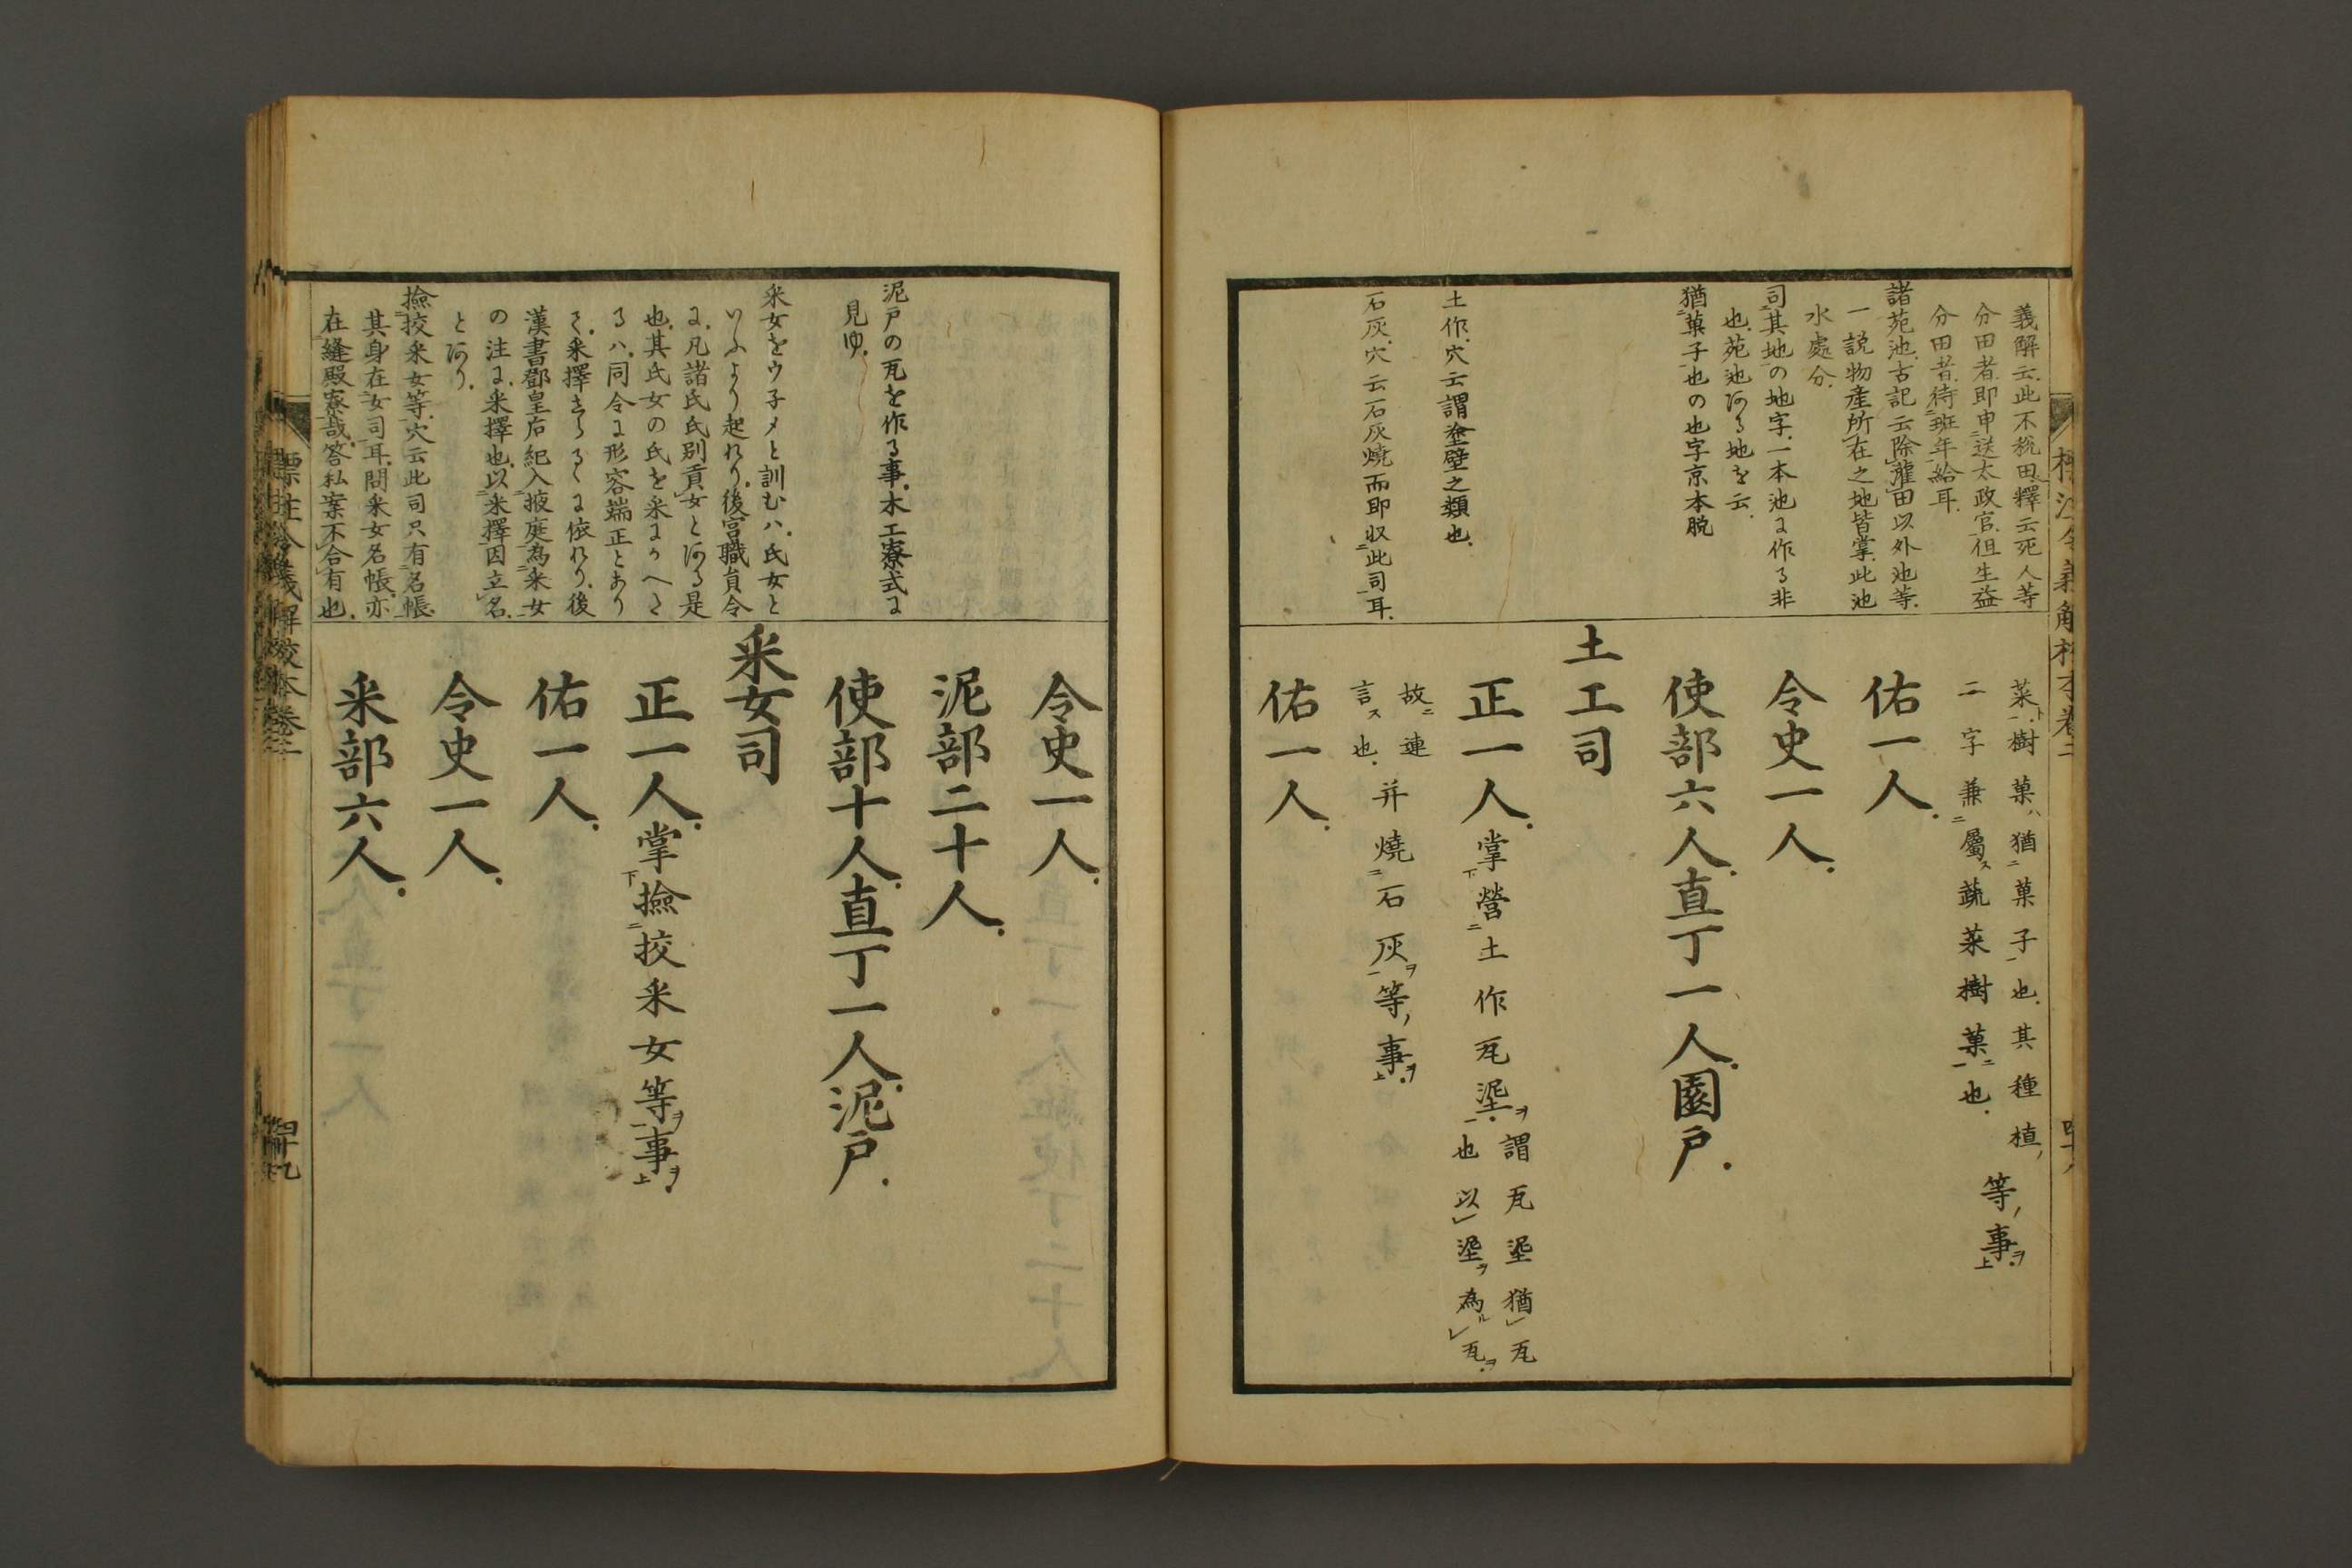 義解云此不税田釋云死人等
分田者即申送太政官但生益
分田者待班年給耳
諸苑池古記云除灌田以外池等
一説物産所在之地皆掌此池
水處分
司其地の地字一本池に作る非
也苑池ある地を云
猶菓子也の也字京本脱
土作穴云謂塗壁之類也
石灰穴云石灰燒而即収此司耳
菜樹菓猶菓子也其種植
二字兼屬蔬菜樹菓也
等事
佑一人
令史一人
使部六人直丁一人園戸
土工司
正一人掌營土作瓦埿
謂瓦埿猶瓦
也以埿為瓦
故連
言也
并燒石灰等事
佑一人
泥戸の瓦を作る事木工寮式に
見ゆ
采女をウ子メと訓むハ氏女と
いふより起れり後宮職員令
に凡諸氏氏別貢女とある是
也其氏女の氏を采にかへた
るハ同令に形容端正とあり
て采擇するに依れり後
漢書鄧皇后紀入掖庭為采女
の注に采擇也以采擇因立名
とあり
撿挍采女等穴云此司只有名帳
其身在女司耳問采女名帳亦
在縫殿寮哉答私案不合有也
令史一人
泥部二十人
使部十人直丁一人泥戸
采女司
正一人掌撿挍采女等事
佑一人
令史一人
采部六人
標注令義解挍本卷二
四十九